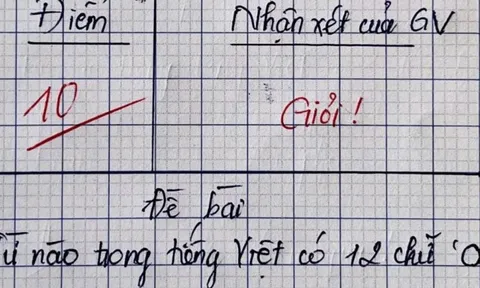 Điểm
Nhận xét của GV
10
Giỏi!
Đề bài
nào trong tiếng Việt có 12 chữ 'O